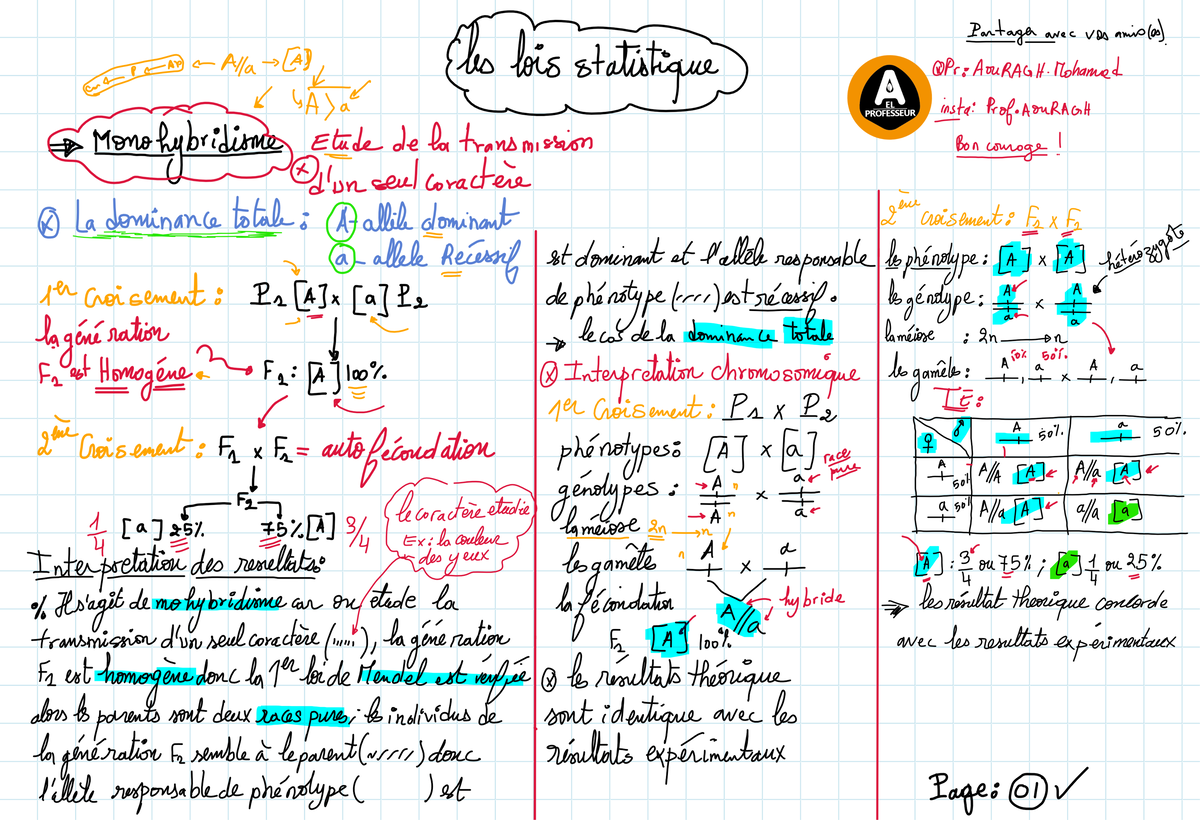 les lois statistique
Partager avec vos amis(es).
Pr: AOURAGH. Mohamed
insta: Prof.AOURAGH
Bon courage !
A
EL
PROFESSEUR
A//a → [A]
A > a
⇒ Monohybridisme
Etude de la transmission
d'un seul caractère
La dominance totale : A - allèle dominant
a - allele Récessif
1er Croisement : P1 [A] x [a] P2
la génération
F1 est Homogène
F1 : [A] 100%
2ème Croisement : F1 x F1 = autofécondation
F2
1/4 [a] 25% 75% [A] 3/4
le caractère etudié
Ex : la couleur
des yeux
Interpretation des resultats:
Il s'agit de mohybridisme car on etude la
transmission d'un seul caractère (......), la géné ration
F1 est homogène donc la 1er loi de Mendel est vérifiée
alors les parents sont deux races pures, les individus de
la géné ration F1 semble à le parent (.....) donc
l'allèle responsable de phénotype ( ) est
est dominant et l'allèle responsable
de phénotype (....) est récessif.
→ le cas de la dominance totale
Interpretation chromosomique
1er Croisement : P1 x P2
phénotypes : [A] x [a]
race
pure
génotypes : A a
A a
la méiose 2n → n
les gamète A x a
la fécondation A//a hybride
F1 [A] 100%
les résultats théorique
sont identique avec les
résultats expérimentaux
2ème Croisement : F1 x F1
le phénotype : [A] x [A]
hétérozygote
le génotype : A x A
a a
la méiose : 2n → n
50% 50%
les gamète : A , a x A , a
I E :
♀ ♂ A 50% a 50%
A 50% A//A [A] A//a [A]
a 50% A//a [A] a//a [a]
[A] : 3/4 ou 75% ; [a] 1/4 ou 25%
⇒ les résultat theorique concorde
avec les resultats expérimentaux
Page: 01